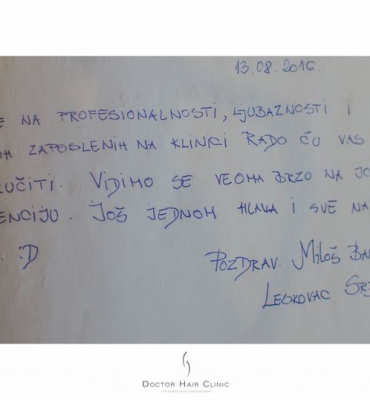 13.08.2016.
E NA PROFESIONALNOSTI, LJUBAZNOSTI I
ZAPOSLENIH NA KLINICI RADO ĆU VAS
UČITI. VIDIMO SE VEOMA BRZO NA JO
ENCIJU. JOŠ JEDNOM HVALA I SVE NA
:D
POZDRAV. MILOŠ
LESKOVAC
DOCTOR HAIR CLINIC